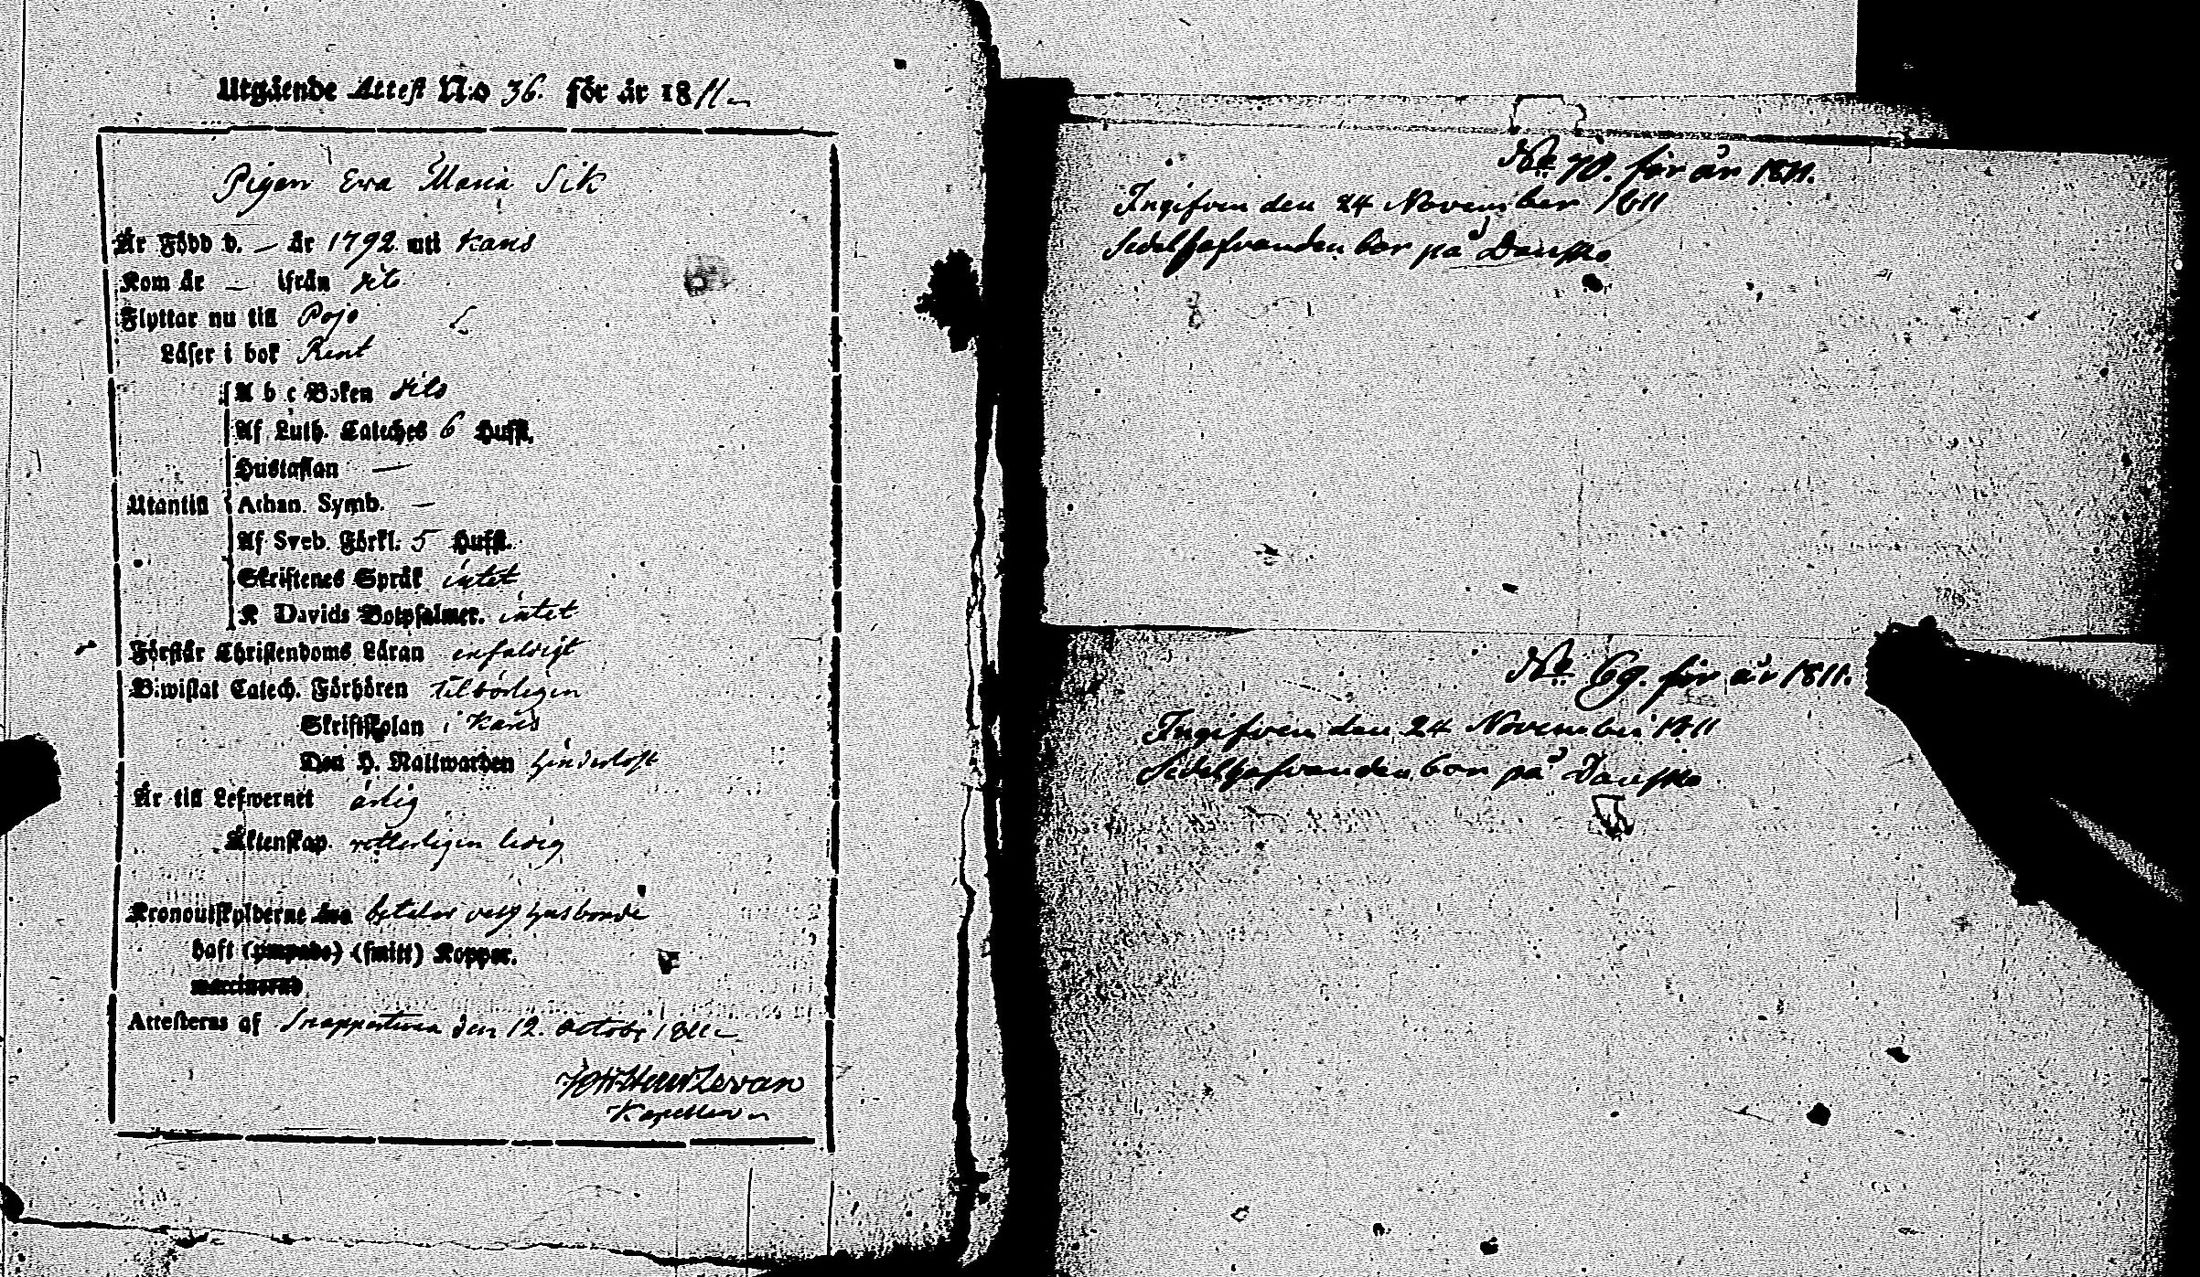 Utgående Attest N:o 36. för år 1811
Pigan Ewa Maria Sik
Är Född d. — år 1792 uti Karis
Kom år — ifrån
Flyttar nu till Pojo
Läser i bok Rent
A b c Boken
Af Luth. Cateches 6 Hufst.
Hustaflan —
Utantill Athan. Symb. —
Af Sveb. Förkl. 5 Hufst.
Skriftenes Språk intet
K Davids Botpsalmer. intet
Förstår Christendoms Läran enfaldigt
Biwistat Catech. Förhören tilbörligen
Skriftskolan i Karis
Den H. Nattwarden hinderlöst
Är till Lefwernet ärlig
Äktenskap. ledig
Kronoutskylderne betalar husbonde
haft (ympade) (smitt) Koppor.
vaccinerad
Attesteras af Snappertuna den 12. Octobr 1811
Kapellan
No 70. för år 1811.
Ingifven den 24 November 1811
Sedelhafvanden bor på Danskog
No 69. för år 1811.
Ingifven den 24 November 1811
Sedelhafvanden bor på Danskog